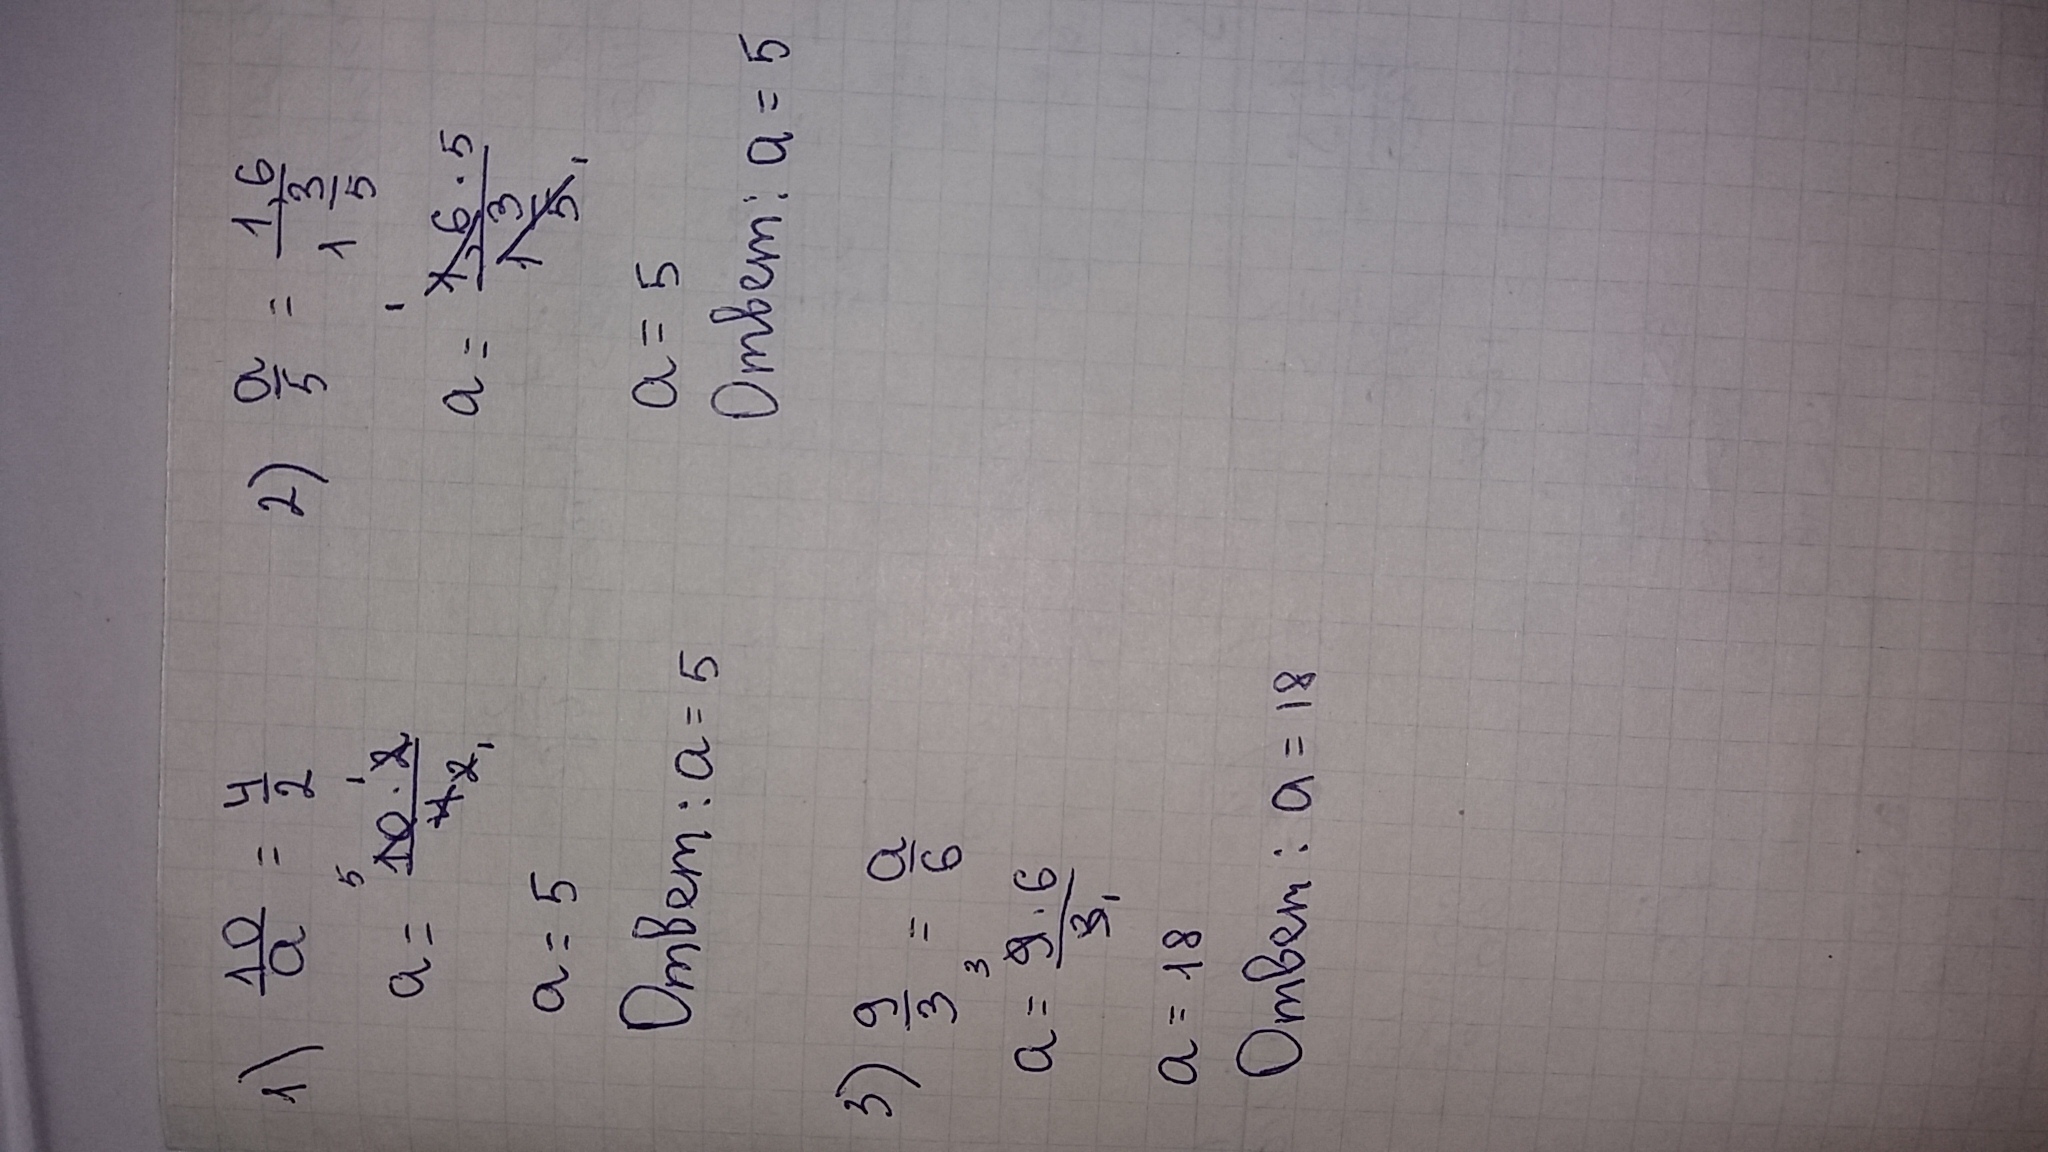 1) 10/a = 4/2
a = 5 10·2 1 / 4 2 1
a = 5
Ответ: a = 5
2) a/5 = 1,6 / 1 3/5
a = 1 1,6·5 / 1 3/5 1
a = 5
Ответ: a = 5
3) 9/3 = a/6
a = 3 9·6 / 3 1
a = 18
Ответ: a = 18